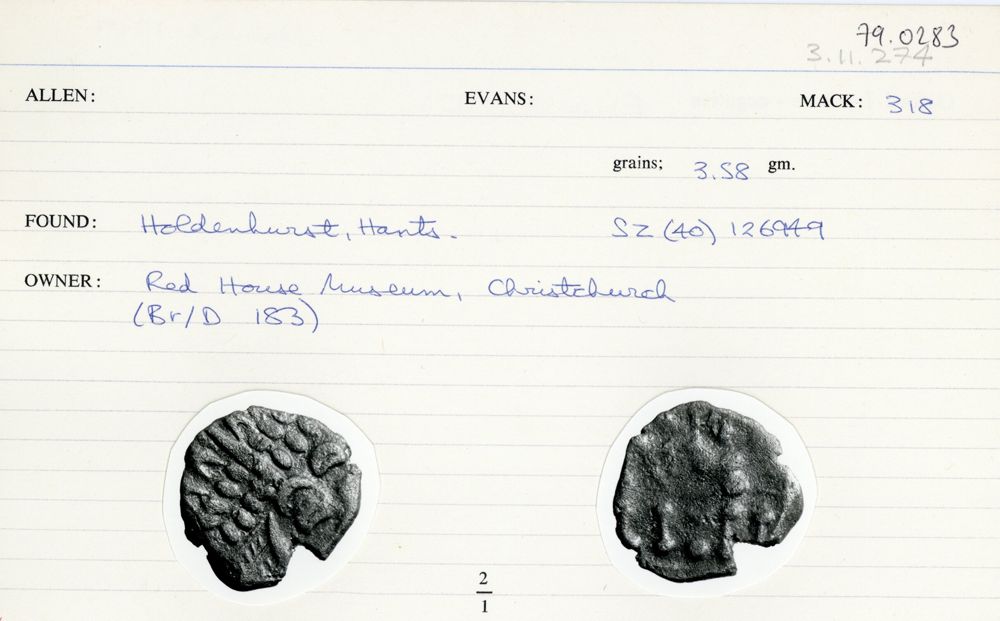 79.0283
3.11.274
ALLEN: EVANS: MACK: 318
grains; 3.58 gm.
FOUND: Holdenhurst, Hants. SZ (40) 126949
OWNER: Red House Museum, Christchurch
(Br/D 183)
2
1